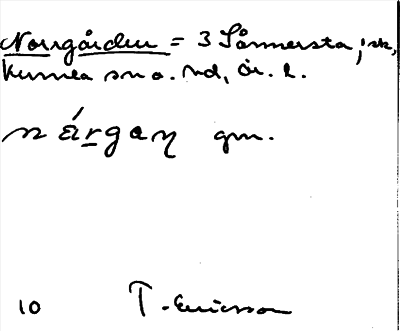 Norrgården = 3 Sånnersta, sk,
Kumla sn o. hd, Ör. l.
nárgaη gm.
10 T. Ericsson